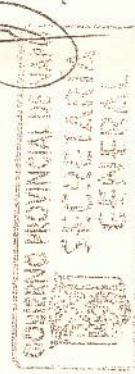 GOBIERNO PROVINCIAL DE
SECRETARIA
GENERAL